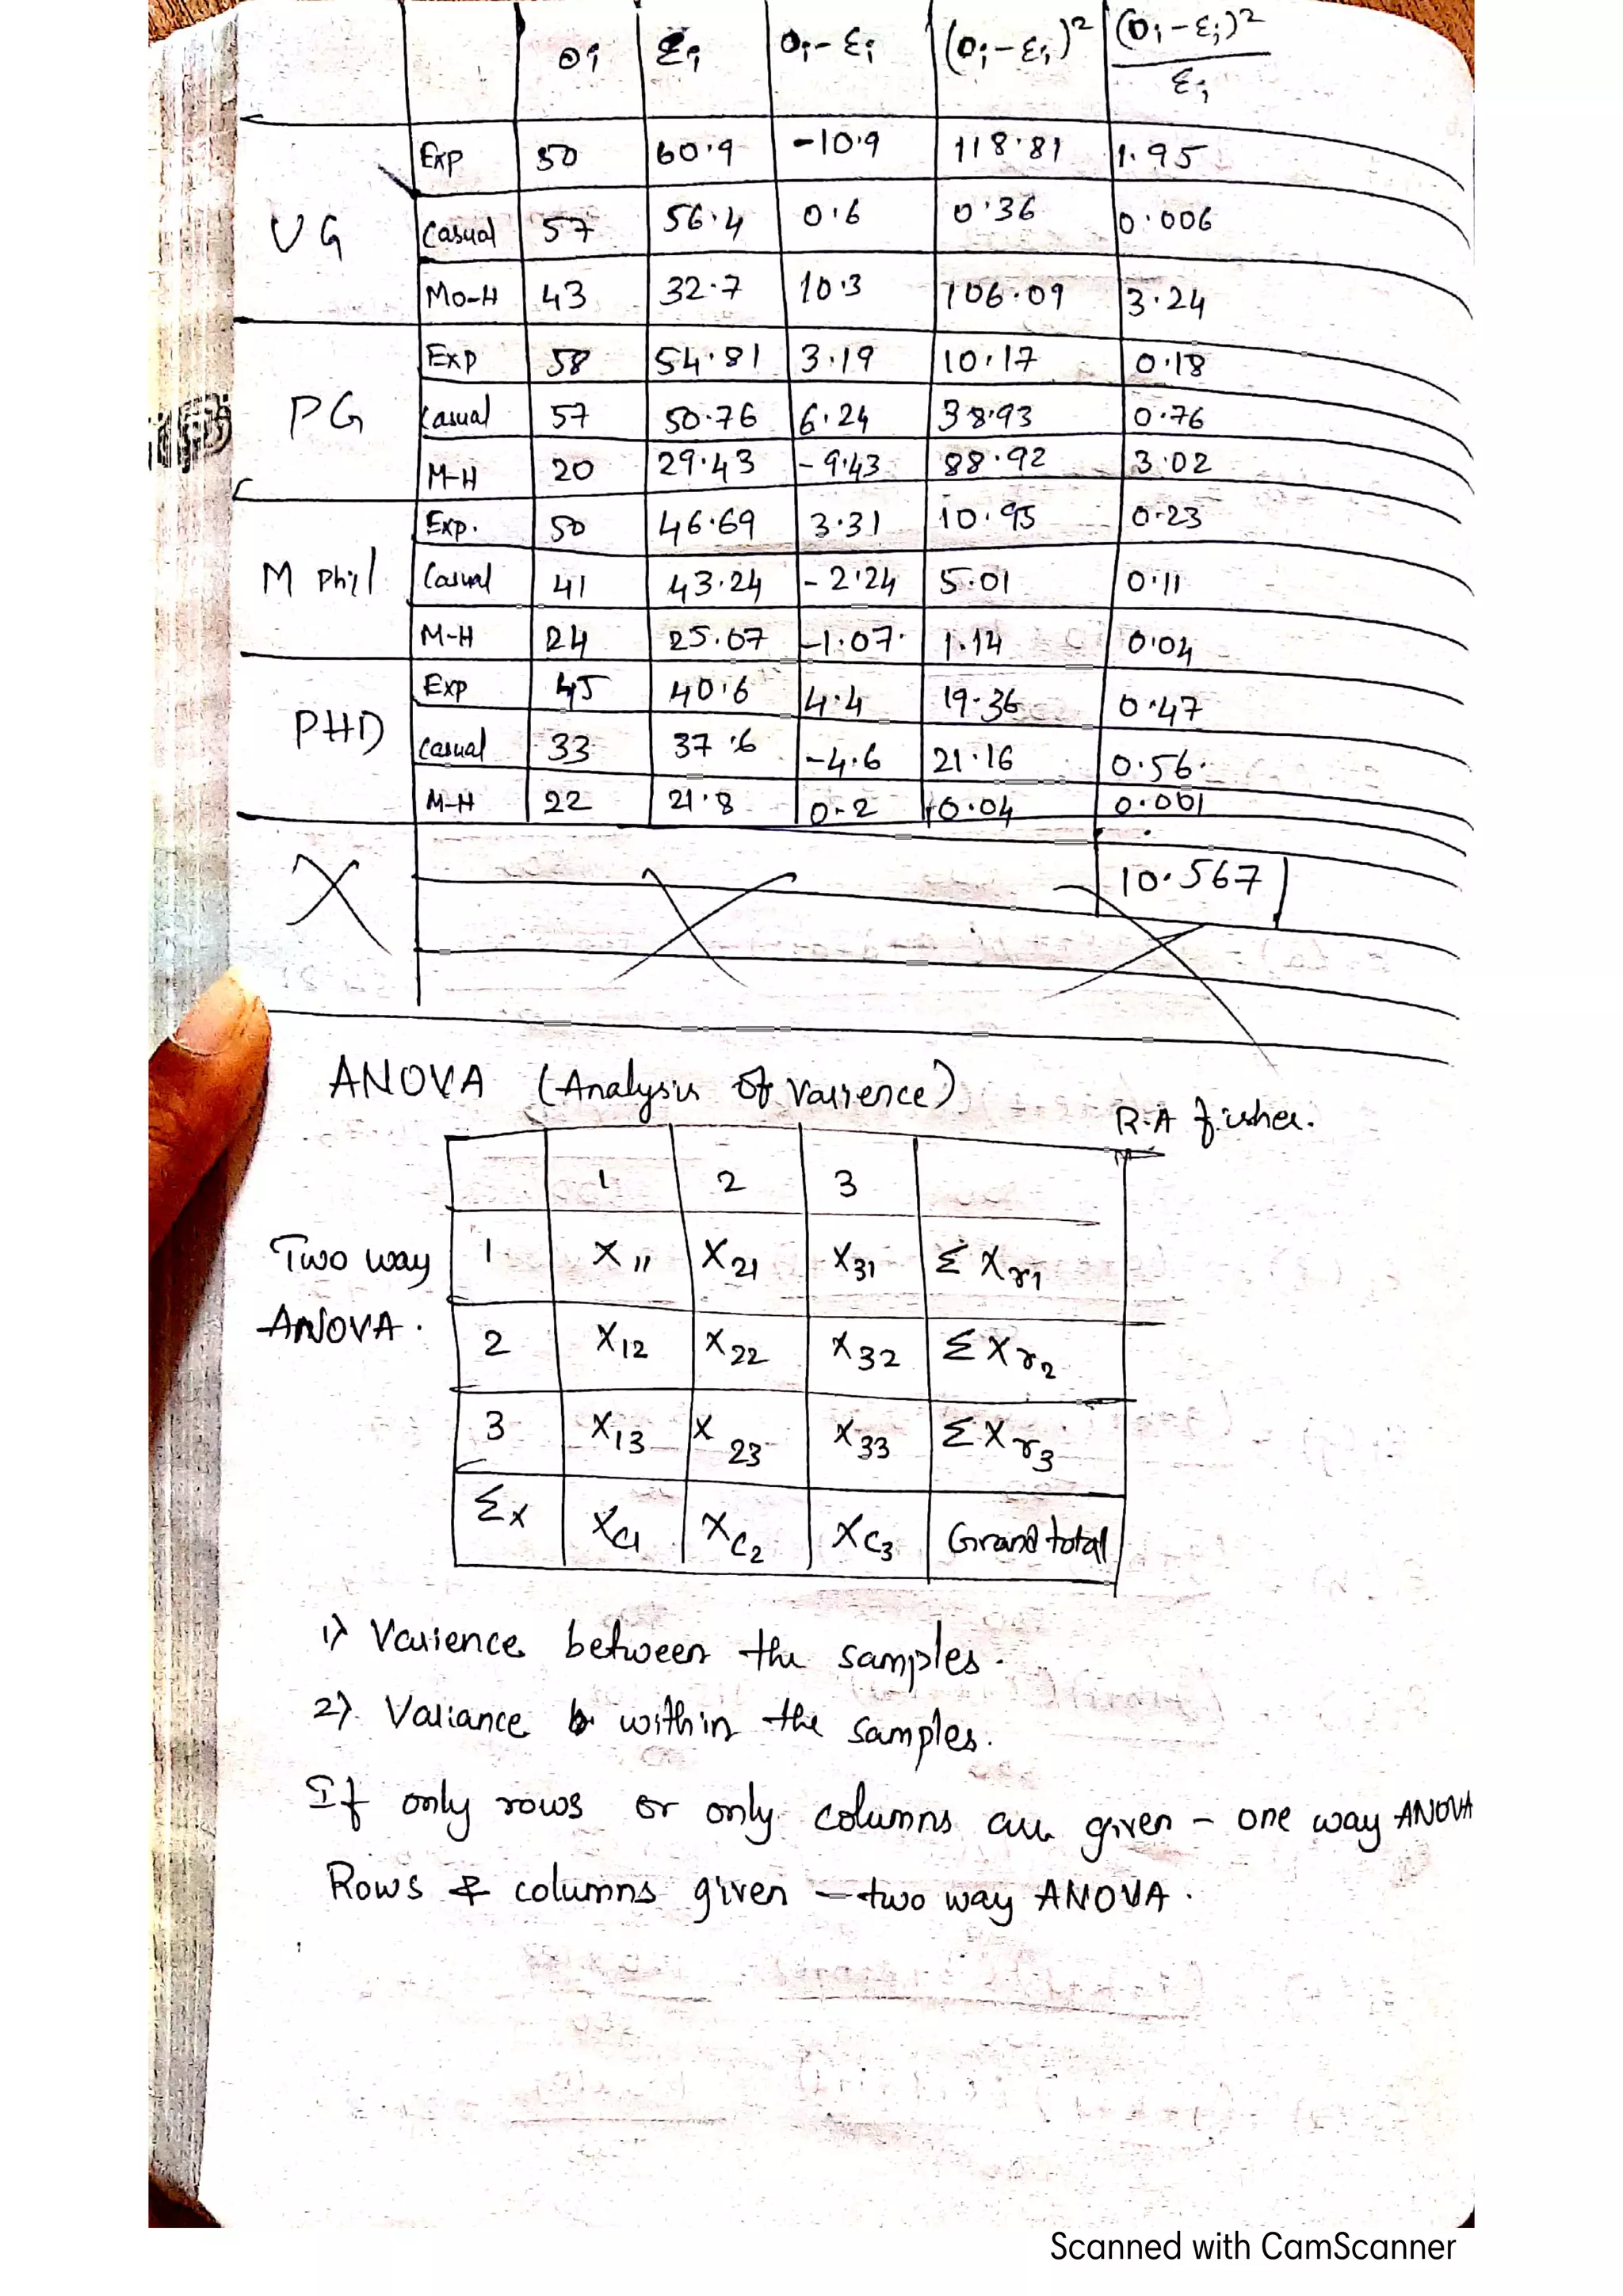 Oi Ei Oi-Ei (Oi-Ei)² (Oi-Ei)²/Ei
UG Exp 50 60.9 -10.9 118.81 1.95
Casual 57 56.4 0.6 0.36 0.006
Mo-H 43 32.7 10.3 106.09 3.24
PG Exp 58 54.81 3.19 10.17 0.18
Casual 57 50.76 6.24 38.93 0.76
M-H 20 29.43 -9.43 88.92 3.02
M phil Exp. 50 46.69 3.31 10.95 0.23
Casual 41 43.24 -2.24 5.01 0.11
M-H 24 25.07 -1.07 1.14 0.04
PHD Exp 45 40.6 4.4 19.36 0.47
Casual 33 37.6 -4.6 21.16 0.56
M-H 22 21.8 0.2 0.04 0.001
10.567
ANOVA (Analysis of Varience)
R.A fisher.
1 2 3
Two way ANOVA.
1 X11 X21 X31 ΣXr1
2 X12 X22 X32 ΣXr2
3 X13 X23 X33 ΣXr3
Σx XC1 XC2 XC3 Grand total
1) Varience between the samples.
2) Variance within the samples.
If only rows or only columns are given - one way ANOVA
Rows & columns given - two way ANOVA.
Scanned with CamScanner